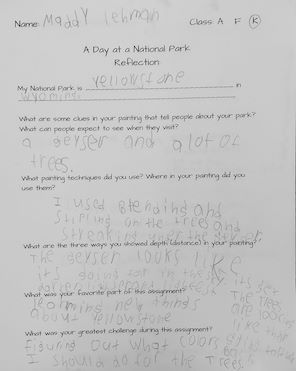 Name: Maddy Lehman Class: A F K
A Day at a National Park
Reflection
My National Park is Yellowstone in
Wyoming.
What are some clues in your painting that tell people about your park?
What can people expect to see when they visit?
a geyser and a lot of
trees.
What painting techniques did you use? Where in your painting did you
use them?
I used blending and
stipling on the trees and
streaking over the geyser.
What are the three ways you showed depth (distance) in your painting?
The geyser looks like
it's going far in the sky
What was your favorite part of this assignment?
learning new things
about Yellowstone
The trees
are looking
like
What was your greatest challenge during this assignment?
Figuring out what colors
I should do for the trees.